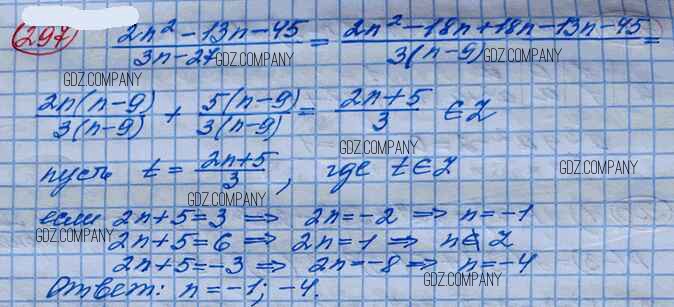 297) (2n² - 13n - 45)/(3n - 27) = (2n² - 18n + 18n - 13n - 45)/(3(n - 9)) =
GDZ.COMPANY GDZ.COMPANY GDZ.COMPANY
2n(n-9)/3(n-9) + 5(n-9)/3(n-9) = (2n+5)/3 ∈ Z
GDZ.COMPANY
пусть t = (2n+5)/3, где t ∈ Z
GDZ.COMPANY GDZ.COMPANY
если 2n+5=3 ⇒ 2n=-2 ⇒ n=-1
GDZ.COMPANY
2n+5=6 ⇒ 2n=1 ⇒ n∉Z
2n+5=-3 ⇒ 2n=-8 ⇒ n=-4
GDZ.COMPANY
Ответ: n=-1; -4.